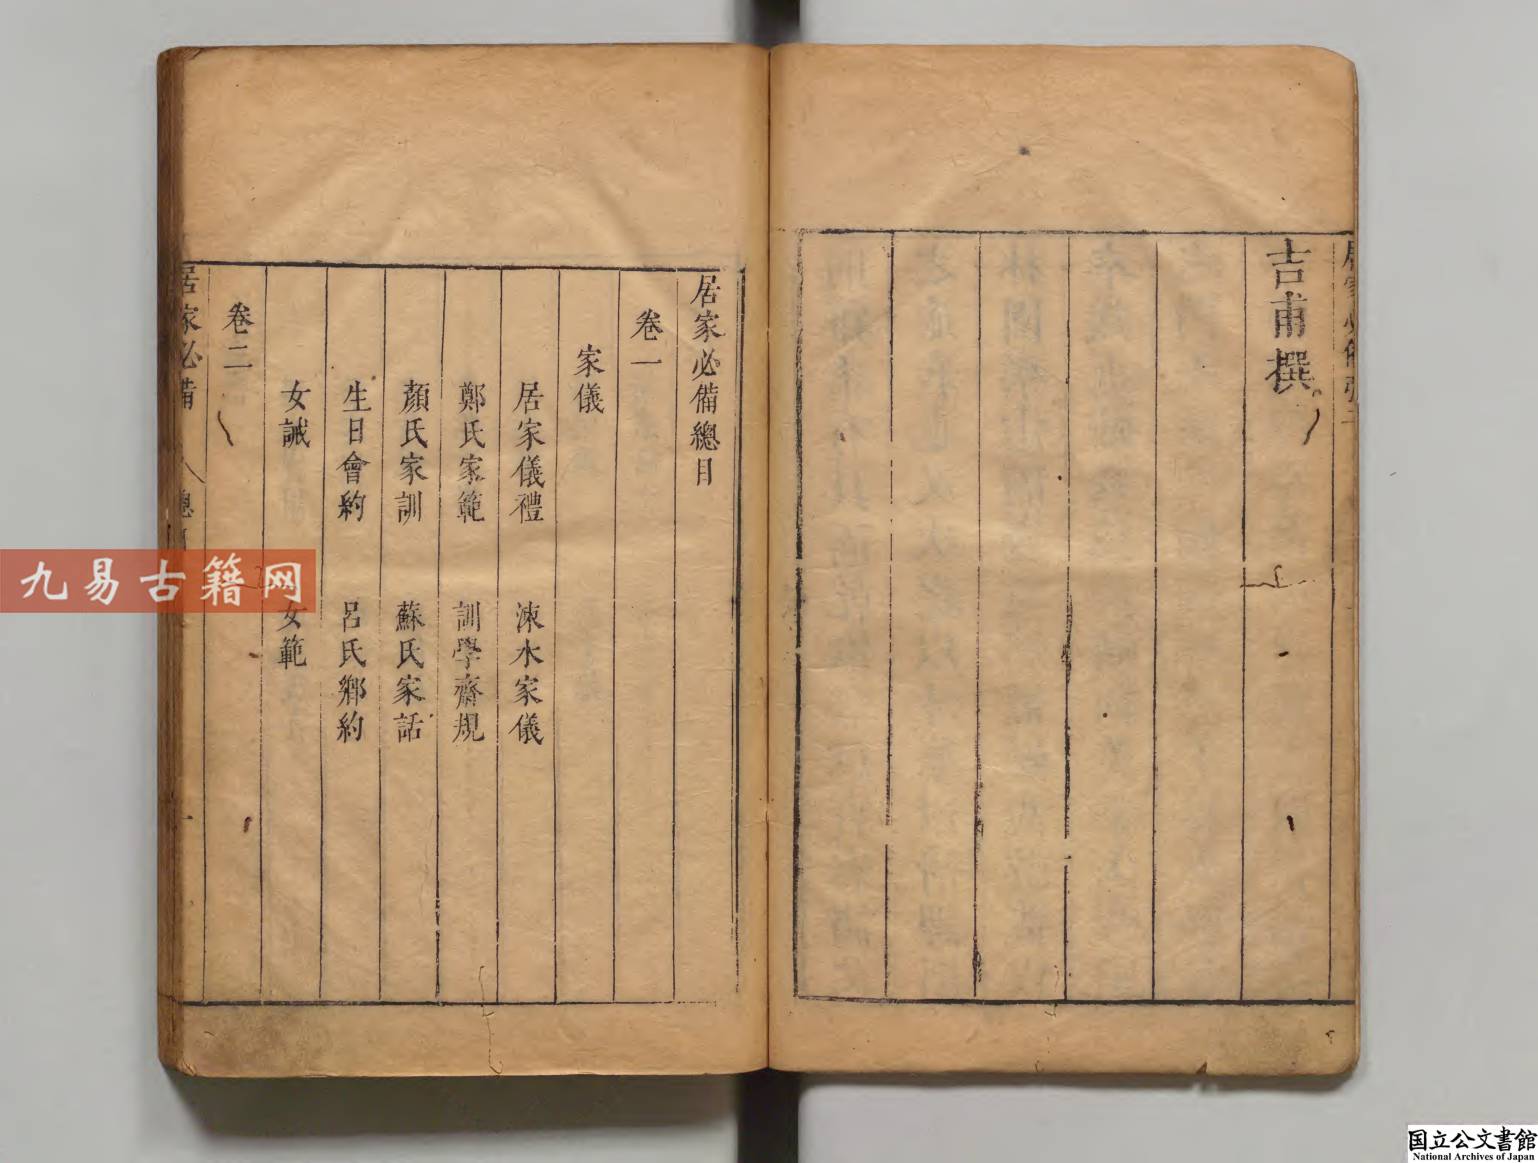 吉甫撰
居家必備總目
卷一
家儀
居家儀禮 涑水家儀
鄭氏家範 訓學齋規
顏氏家訓 蘇氏家話
生日會約 呂氏鄉約
女誡 女範
卷二
居家必備 總
九易古籍网
国立公文書館
National Archives of Japan